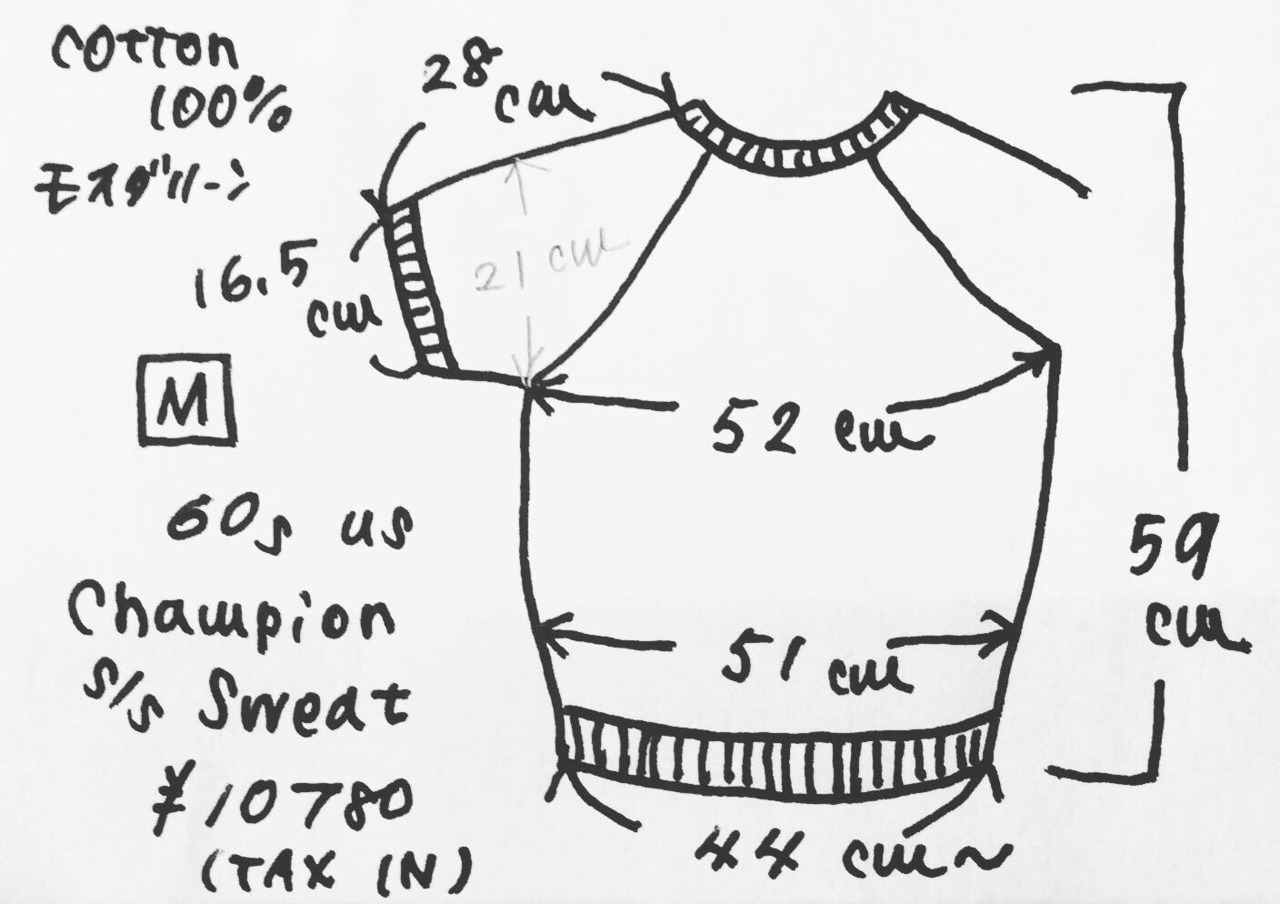 Cotton
100%
モスグリーン
28
cm
16.5
cm
21 cm
M
60s us
Champion
s/s Sweat
¥10780
(TAX IN)
52 cm
51 cm
44 cm~
59
cm